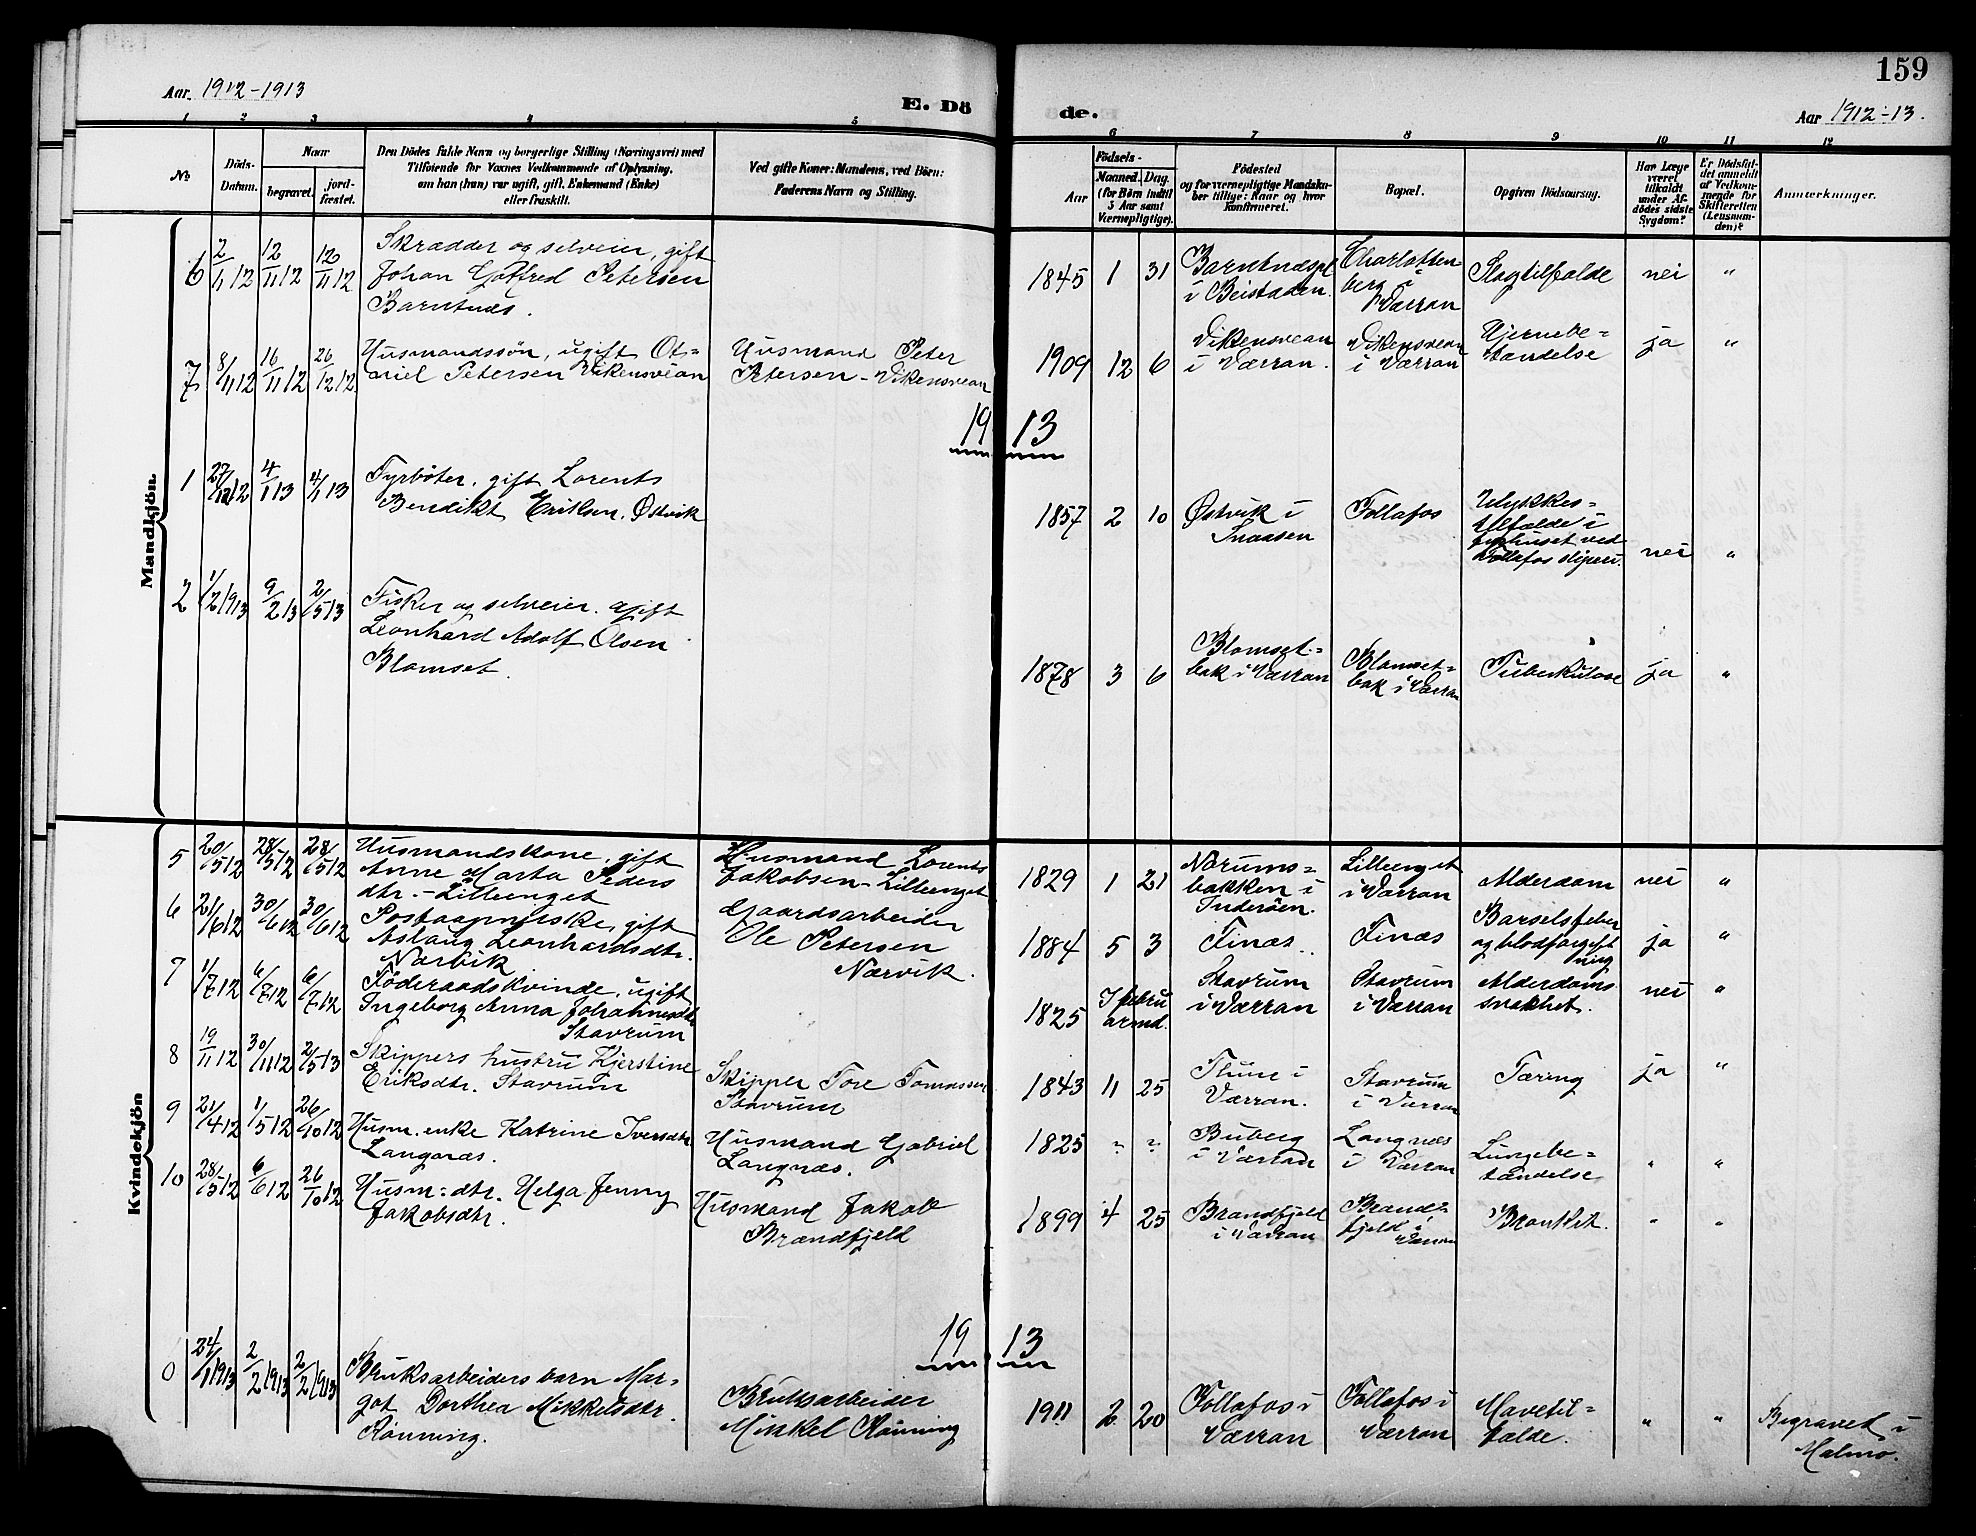 159
Aar. 1912-1913
E. Dö
de.
Aar 1912-13.
1 2 3 4 5
6 7 8 9 10 11 12
No
Döds-
Datum.
Naar
begravet.
jord-
fæstet.
Den Dödes fulde Navn og borgerlige Stilling (Næringsvei) med
Tilföiende for Voxnes Vedkommende af Oplysning,
om han (hun) var ugift, gift, Enkemand (Enke)
eller fraskilt.
Ved gifte Koner: Mandens, ved Börn:
Faderens Navn og Stilling.
Födsels-
Aar
Maaned.
Dag.
(for Börn indtil
3 Aar samt
Værnepligtige).
Födested
og for værnepligtige Mandska-
ber tillige: Naar og hvor
konfirmeret.
Bopæl.
Opgiven Dödsaarsag.
Har Læge
været
tilkaldt
under Af-
dödes sidste
Sygdom?
Er Dödsfal-
det anmeldt
af Vedkom-
mende for
Skifteretten
(Lensman-
den)?
Anmærkninger.
Mandkjön.
6 2/11 12 12/11 12 12/11 12
Skrædder og selveier, gift
Johan Gotfred Petersen
Barntnæs.
1845 1 31
Barntnæspl
i Beistaden.
Charlotten-
berg i
Værran
Slagtilfælde
nei "
7 8/11 12 16/11 12 26/12 12
Husmandssön, ugift Ot-
ariel Petersen Vikensvean
Husmand Peter
Petersen-Vikensvean
1909 12 6
Vikensvean
i Værran.
Vikensvean
i Værran
Hjernebe-
tændelse
ja "
1913
1 27/12 12 4/1 13 4/1 13
Fyrböter, gift Lorents
Bendikt Eriksen. Østvik
1857 2 10
Østvik i
Snaasen
Follafos
Ulykkes-
tilfælde i
ved
Follafos sliperi.
nei "
2 1/2 1913 9/2 13 2/5 13
Fisker og selveier. gift
Leonhard Adolf Olsen
Blomset.
1878 3 6
Blomset-
bak i Værran
Blomset-
bak i Værran
Tuberkulose
ja "
Kvindekjön
5 20/5 12 28/5 12 28/5 12
Husmandskone, gift
Anne Marta Peders
dtr.-Lilleenget
Husmand Lorents
Jakobsen-Lilleenget
1829 1 21
Nørums-
bakken i
Inderöen.
Lilleenget
i Værran
Alderdom
nei "
6 21/6 12 30/6 12 30/6 12
gift
Aslaug Leonhardsdtr.
Nærvik
Gaardsarbeider
Ole Petersen
Nærvik.
1884 5 3
Finæs.
Finæs
Barselsfeber
og blodforgift
ning
ja "
7 1/7 12 6/7 12 6/7 12
Föderaadskvinde, ugift
Ingeborg Anna Johannesdtr
Stavrum
1825 I febru
armd.
Stavrum
i Værran
Stavrum
i Værran
Alderdoms
svakhet.
nei "
8 19/11 12 30/11 12 2/5 13
Skippers hustru Kjerstine
Eriksdtr. Stavrum
Skipper Tore Tomassen
Stavrum
1843 11 25
i
Værran.
Stavrum
i Værran
Tæring
ja "
9 21/4 12 1/5 12 26/10 12
Husm. enke Katrine Iversdtr
Langnæs.
Husmand Gabriel
Langnæs.
1825 " "
Buberg
i Værran
Langnæs
i Værran
Lungebe-
tændelse
" "
10 28/5 12 6/6 12 26/10 12
Husm:dtr. Helga Jenny
Jakobsdtr.
Husmand Jakob
Brandfjeld
1899 4 25
Brandfjeld
i Værran
Brand-
fjeld i
Værran
Bronkit.
" "
1913
24/1 1913 2/2 1913 2/2 1913
Bruksarbeiders barn Mar-
got Dorthea Mikkelsdtr.
Rönning.
Bruksarbeider
Mikkel Rönning
1911 2 20
Follafos i
Værran
Follafos i
Værran
Mavetil-
fælde.
" "
Begravet i
Malmo.